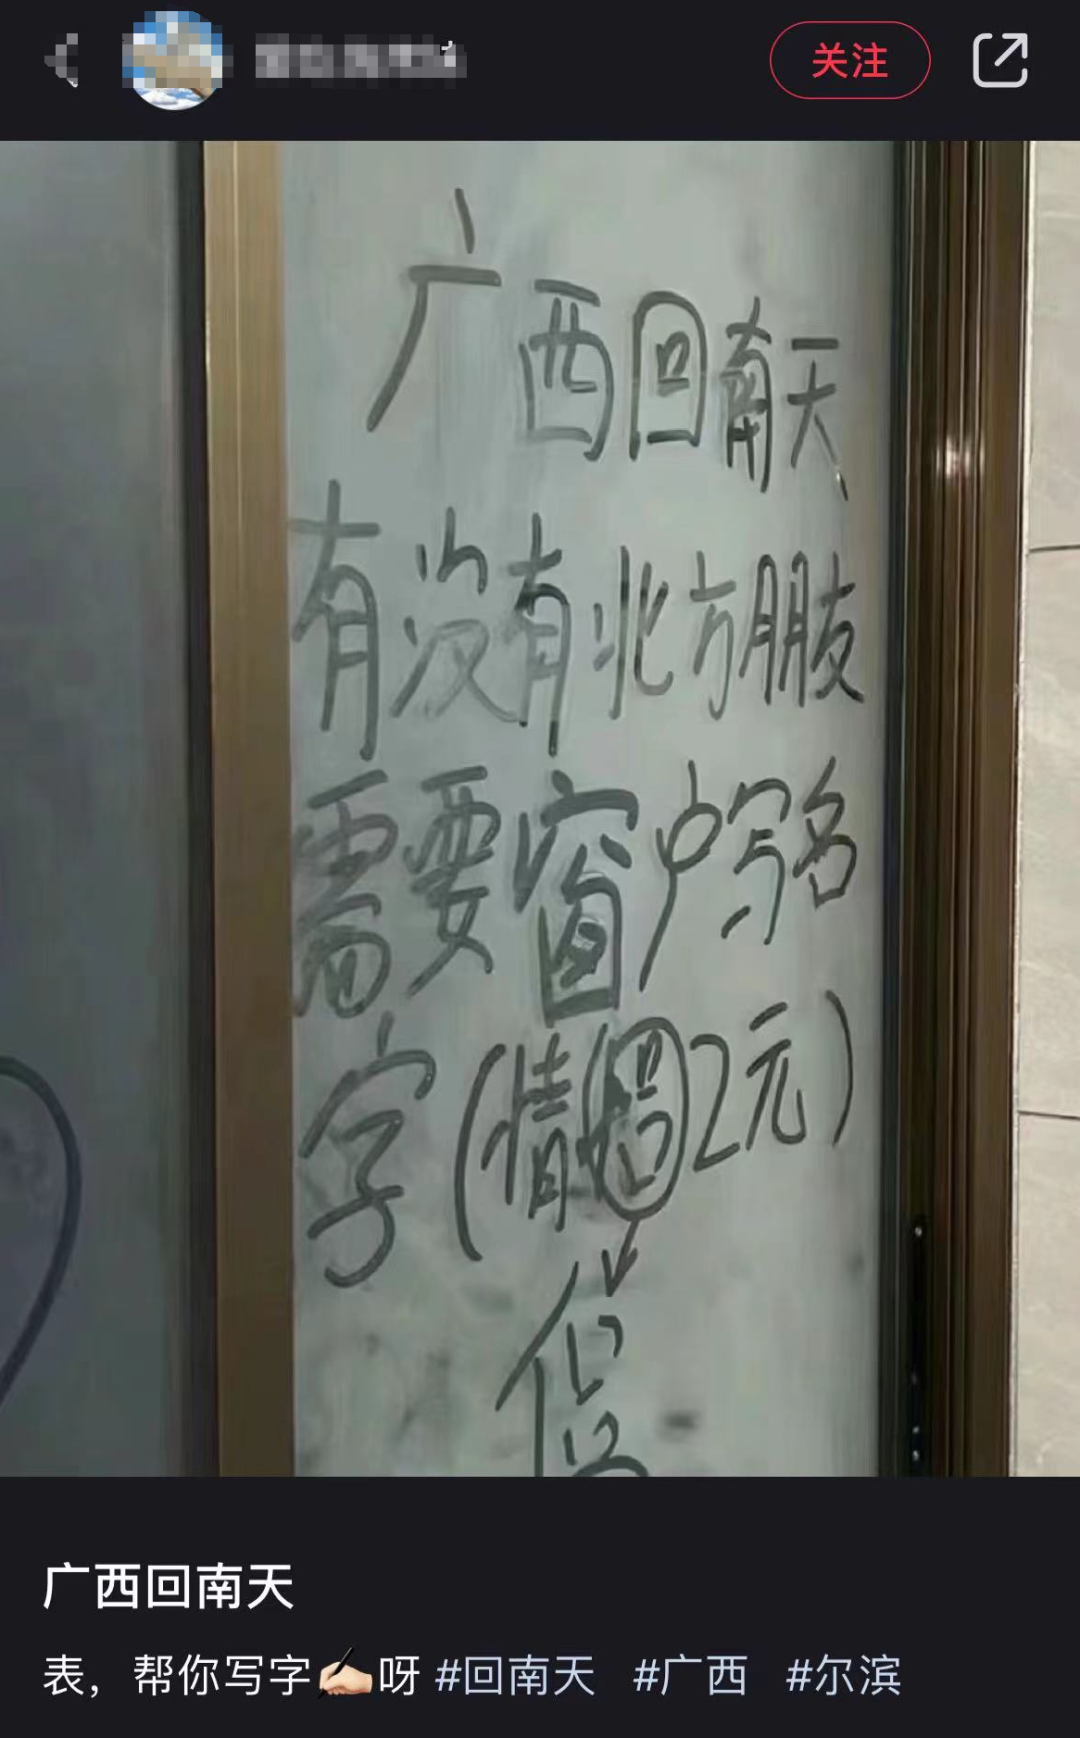 关注
广西回南天
有没有北方朋友
需要窗户写名
字(情侣2元)
侣
广西回南天
表，帮你写字✍🏻呀 #回南天 #广西 #尔滨